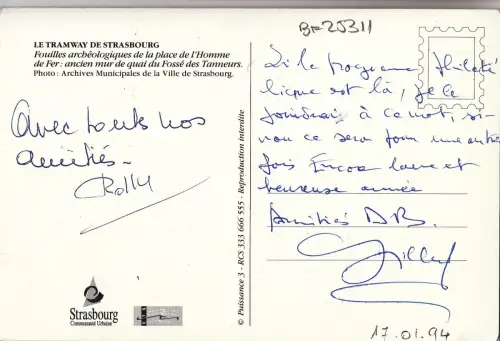 BF25311
LE TRAMWAY DE STRASBOURG
Fouilles archéologiques de la place de l'Homme
de Fer : ancien mur de quai du Fossé des Tanneurs.
Photo : Archives Municipales de la Ville de Strasbourg.
Avec toutes nos
amitiés -
Rolly
© Puissance 3 - RCS 333 666 555 - Reproduction interdite
Si le programme philaté
lique est là, je le
joindrais à ce mot, si-
non ce sera pour une autre
fois Encore bonne et
heureuse année
Amitiés DB.
Strasbourg
Communauté Urbaine
CTS
17.01.94